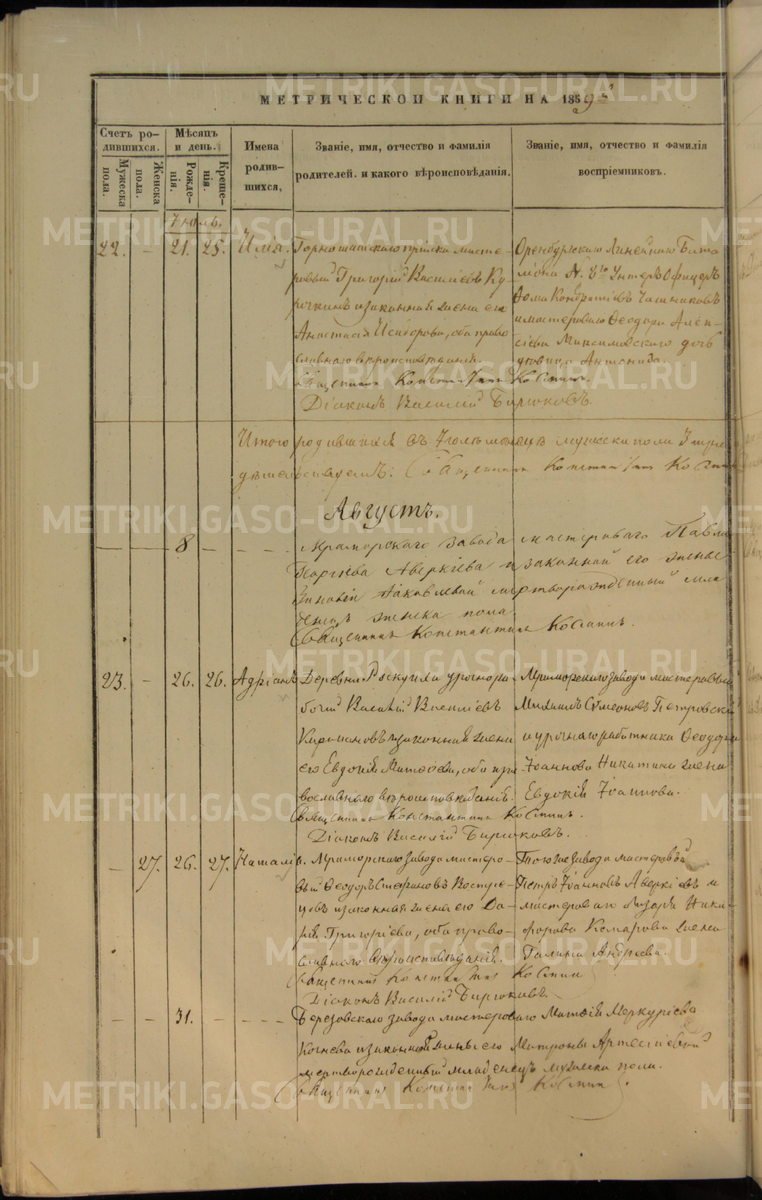 МЕТРИЧЕСКОЙ КНИГИ НА 1859й
Счет ро-
дившихся.
Мужеска
пола.
Женска
пола.
Мѣсяцъ
и день.
Рожде-
нія.
Креще-
нія.
Имена
родив-
шихся,
Званіе, имя, отчество и фамилія
родителей. и какого вѣроисповѣданія.
Званіе, имя, отчество и фамилія
воспріемниковъ.
Іюль.
22. – 21. 25. Илія.
Горнощитскаго пріиска масте-
ровый Григорій Василіевъ Ку-
рочкинъ и законная жена его
Анастасія Исидорова, оба право-
славнаго вѣроисповѣданія.
Священникъ Константинъ Косминъ.
Діаконъ Василій Бирюковъ.
Оренбургскаго Линейнаго Бата-
ліона Унтеръ Офицеръ
Кондратіевъ
и мастероваго Ѳеодора Алек-
сіева Максимовскаго дочь
дѣвица Антонида.
Итого родившихся въ Іюлѣ мѣсяцѣ мужеска пола
Священникъ Константинъ Косминъ
Августъ.
– – 8 – – – –
Мраморскаго завода мастероваго Павла
Георгіева Аверкіева и законной его жены
Зиновіи Іаковлевой мертворожденный мла-
денецъ женска пола.
Священникъ Константинъ Косминъ.
23. – 26. 26. Адріанъ
Деревни Раскуихи урочнора-
бочій Василій Василіевъ
и законная жена
его Евдокія Матѳеева, оба пра-
вославнаго вѣроисповѣданія.
Священникъ Константинъ Косминъ.
Діаконъ Василій Бирюковъ.
Мраморскаго завода мастеровый
Михаилъ Симеоновъ Петровскій
и урочнаго работника Ѳеодора
Іоаннова Никитина жена
Евдокія Іоаннова.
– 27. 26. 27. Наталія.
Мраморскаго завода мастеро-
вый Ѳеодоръ Стефановъ Востре-
цовъ и законная жена его Да-
рія Григоріева, оба право-
славнаго вѣроисповѣданія.
Священникъ Константинъ Косминъ
Діаконъ Василій Бирюковъ.
Тогоже завода мастеровой
Петръ Іоанновъ Аверкіевъ и
мастероваго Лазаря Ники-
форова Комарова жена
Галина Андреева.
– – 31. – – – –
Березовскаго завода мастероваго Матѳія Меркуріева
Кочнева и законной жены его Матроны
мертворожденный младенецъ мужеска пола.
Священникъ Константинъ Косминъ.
METRIKI.GASO-URAL.RU